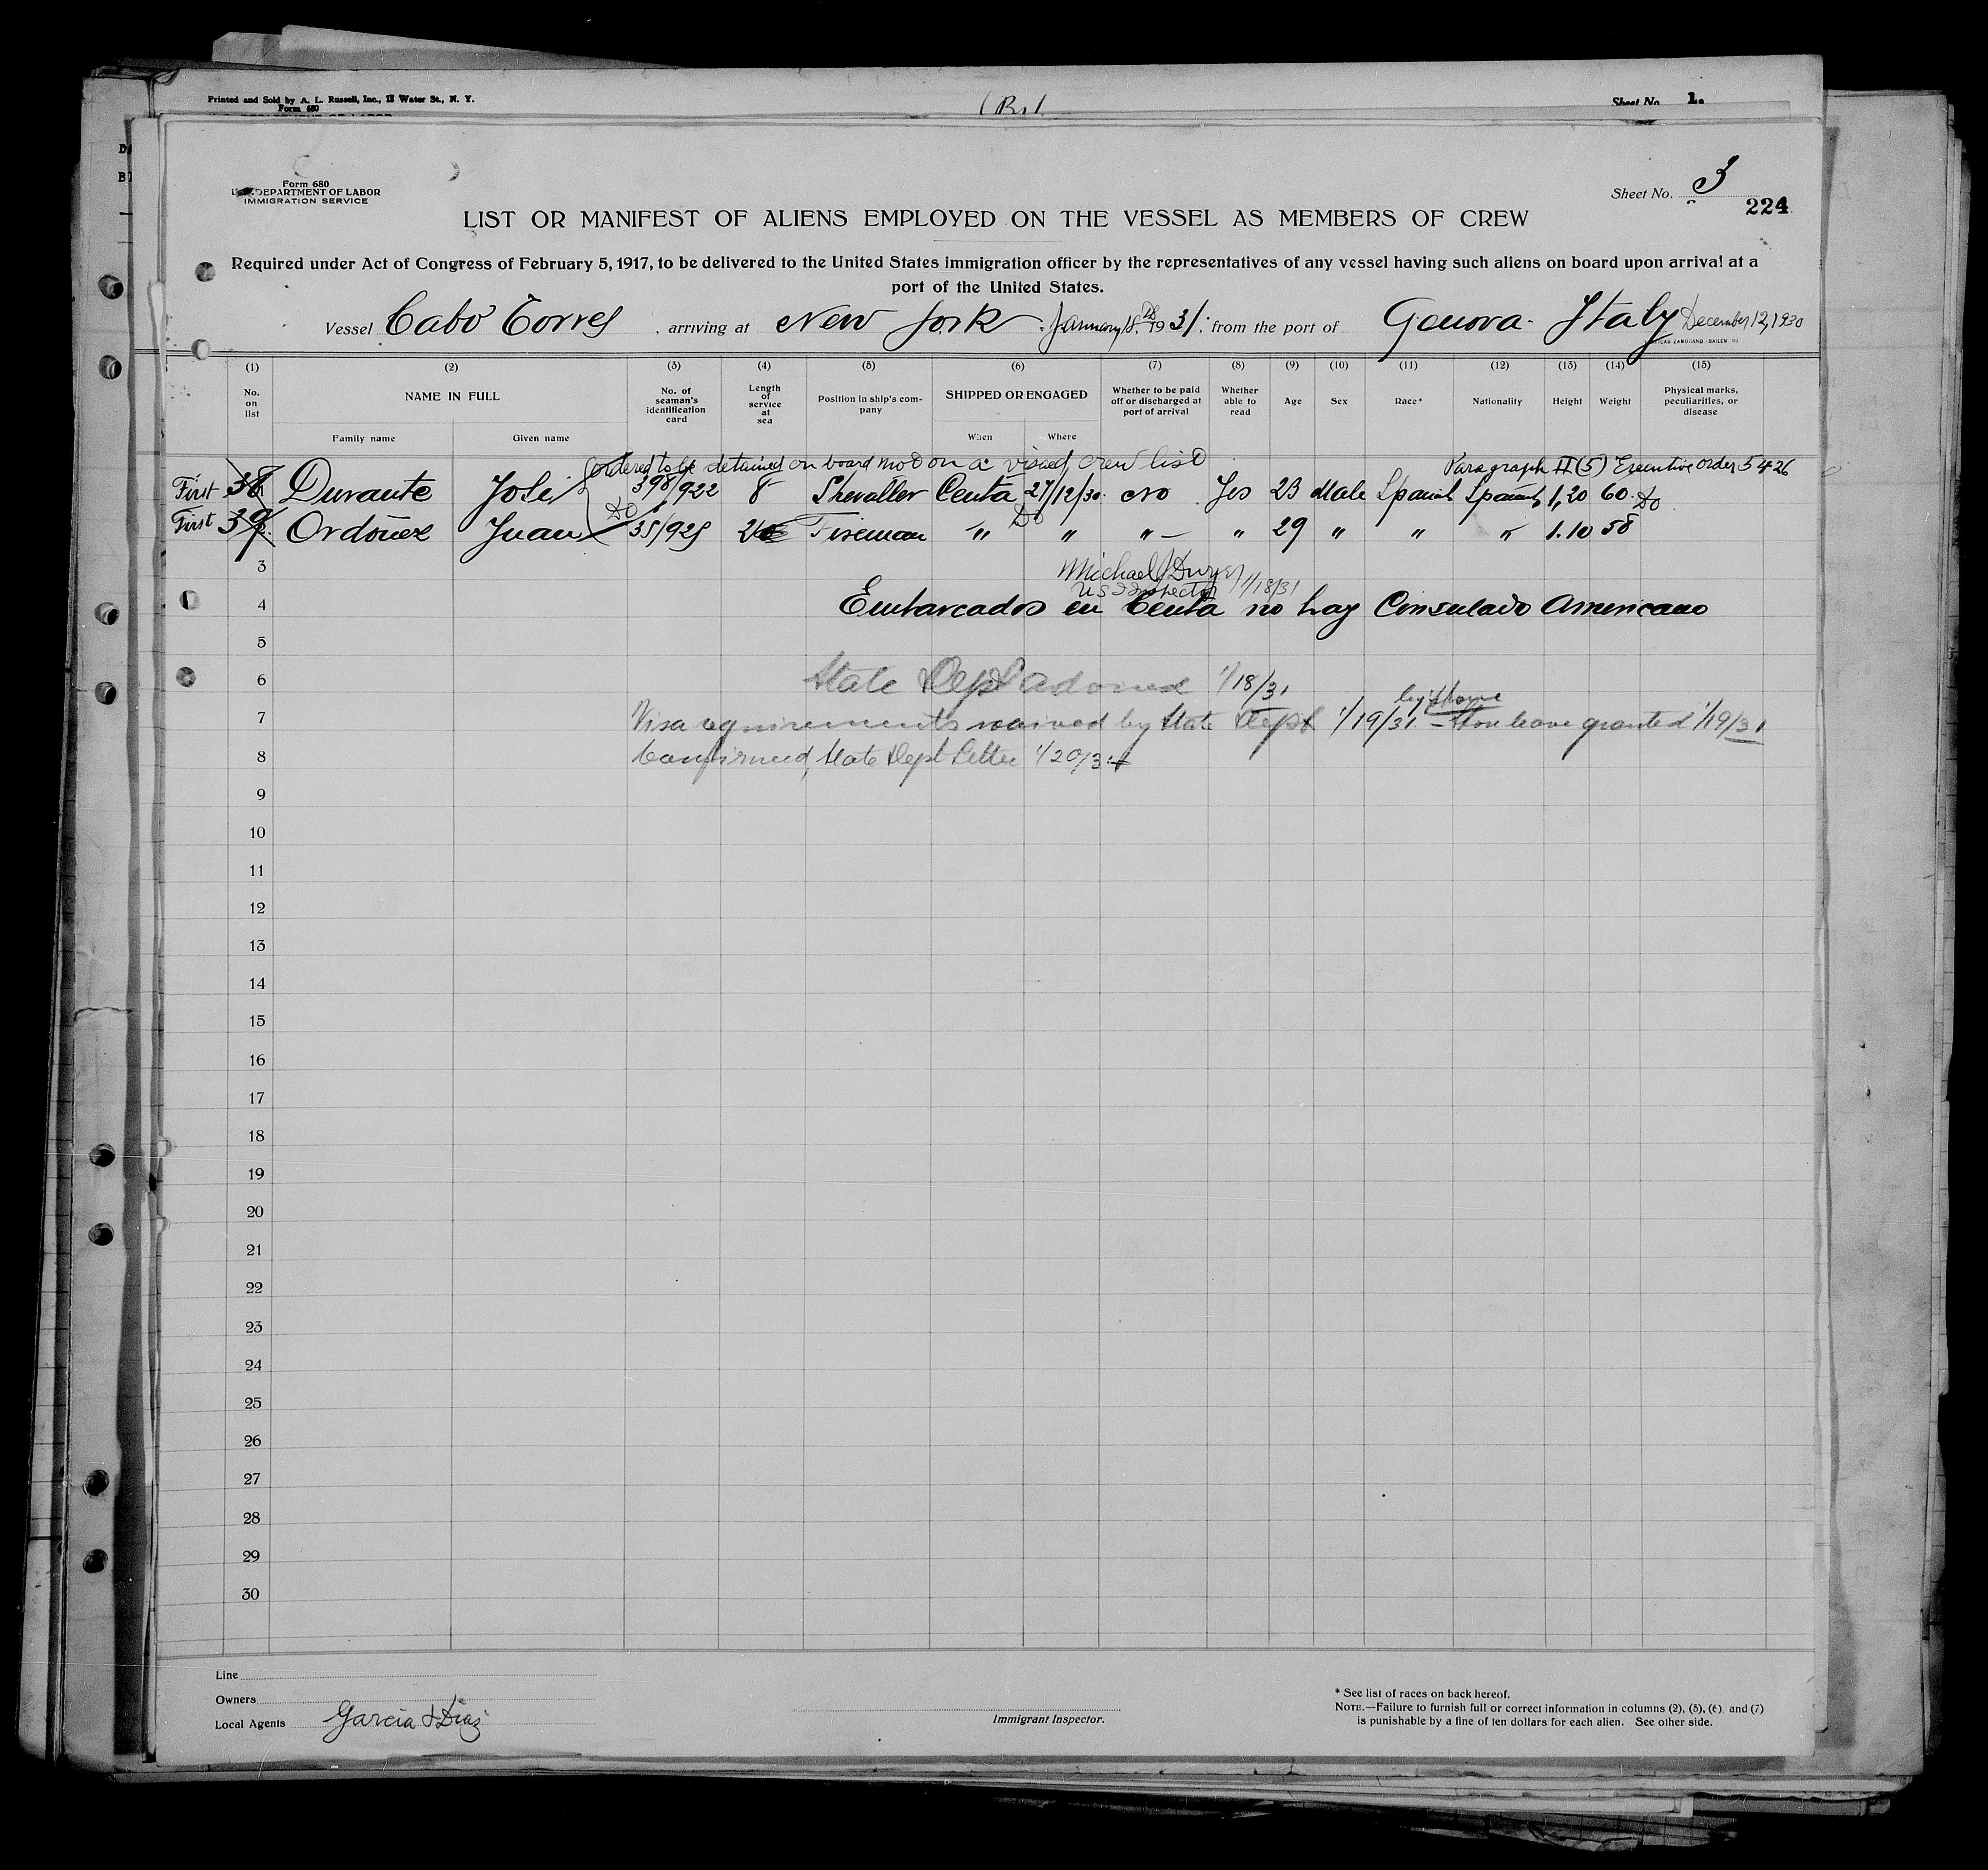 Printed and Sold by A. L. Russell, Inc., 12 Water St., N. Y.
Form 680
Sheet No. 1.
Form 680
DEPARTMENT OF LABOR
IMMIGRATION SERVICE
Sheet No. 3
224
LIST OR MANIFEST OF ALIENS EMPLOYED ON THE VESSEL AS MEMBERS OF CREW
Required under Act of Congress of February 5, 1917, to be delivered to the United States immigration officer by the representatives of any vessel having such aliens on board upon arrival at a
port of the United States.
Vessel Cabo Torres, arriving at New York January 18, 1931, from the port of Genova - Italy December 12, 1930
(1) (2) (3) (4) (5) (6) (7) (8) (9) (10) (11) (12) (13) (14) (15)
No. on list NAME IN FULL No. of seaman's identification card Length of service at sea Position in ship's company SHIPPED OR ENGAGED Whether to be paid off or discharged at port of arrival Whether able to read Age Sex Race* Nationality Height Weight Physical marks, peculiarities, or disease
Family name Given name When Where
ordered to be detained on board not on a visaed crew list Paragraph II (5) Executive order 5426
First 38 Durante José 398/922 8 Ceuta 27/12/30 No Yes 23 Male Spanish Spanish 1,20 60 Do
First 39 Ordoñez Juan Do 35/925 Fireman " Do " " — " 29 " " " 1.10 58
3
Michael J Dwyer
US Inspector 1/18/31
4 Embarcados en Ceuta no hay Consulado Americano
5
6 State Dept advised 1/18/31
by phone
7 Visa requirements waived by State Dept 1/19/31 - Shore leave granted 1/19/31
8 Confirmed, State Dept Letter 1/20/31
9
10
11
12
13
14
15
16
17
18
19
20
21
22
23
24
25
26
27
28
29
30
Line
Owners
Local Agents Garcia & Diaz
Immigrant Inspector.
* See list of races on back hereof.
NOTE.—Failure to furnish full or correct information in columns (2), (5), (6) and (7)
is punishable by a fine of ten dollars for each alien. See other side.